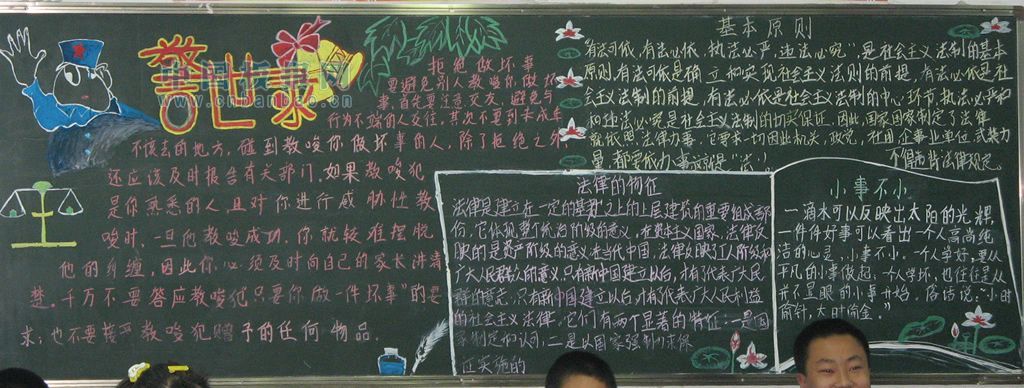 警世录
拒绝做坏事
要避免别人教唆你做坏
事,首先要注意交友,避免与
行为不端的人交往。其次不要到未成年
不该去的地方,碰到教唆你做坏事的人,除了拒绝之外
还应该及时报告有关部门,如果教唆犯
是你熟悉的人,且对你进行威胁性教
唆时,一旦他教唆成功,你就较难摆脱
他的纠缠,因此你必须及时向自己的家长讲清
楚。千万不要答应教唆他"只要你做一件坏事"的要
求;也不要接受教唆犯赠予的任何物品。
基本原则
"有法可依,有法必依,执法必严,违法必究",是社会主义法制的基本
原则,有法可依是确立和实现社会主义法则的前提,有法必依是社
会主义法制的前提,有法必依是社会主义法制的中心环节,执法必严和
和违法必究是社会主义法制的切实保证,因此,国家制定了法律
就依照法律办事,它要求一切国机关,政党,社团企事业单位武装力
量,都要依
不得违背法律规定。
法律的特征
法律是建立在一定的基础之上的上层建筑的重要组成部
份,它体现了统治阶级的意义,在
映的是
广大人民群众的意义,只有新中国建立以后,才有了代表广大民
只有新中国建立以后,才有了代表广大人民利益
的社会主义法律,它们有两个显著的特征:一是国
家制定和认可,二是以国家强制力来保
证实施的
小事不小
一滴水可以反映出太阳的光辉,
一件件好事可以看出一个人高尚纯
洁的心灵,小事不小,一个人学好,要从
平凡的小事做起,一个人学坏,也往往是从
并不显眼的小事开始,俗话说:"小时
偷针,大时偷金。"